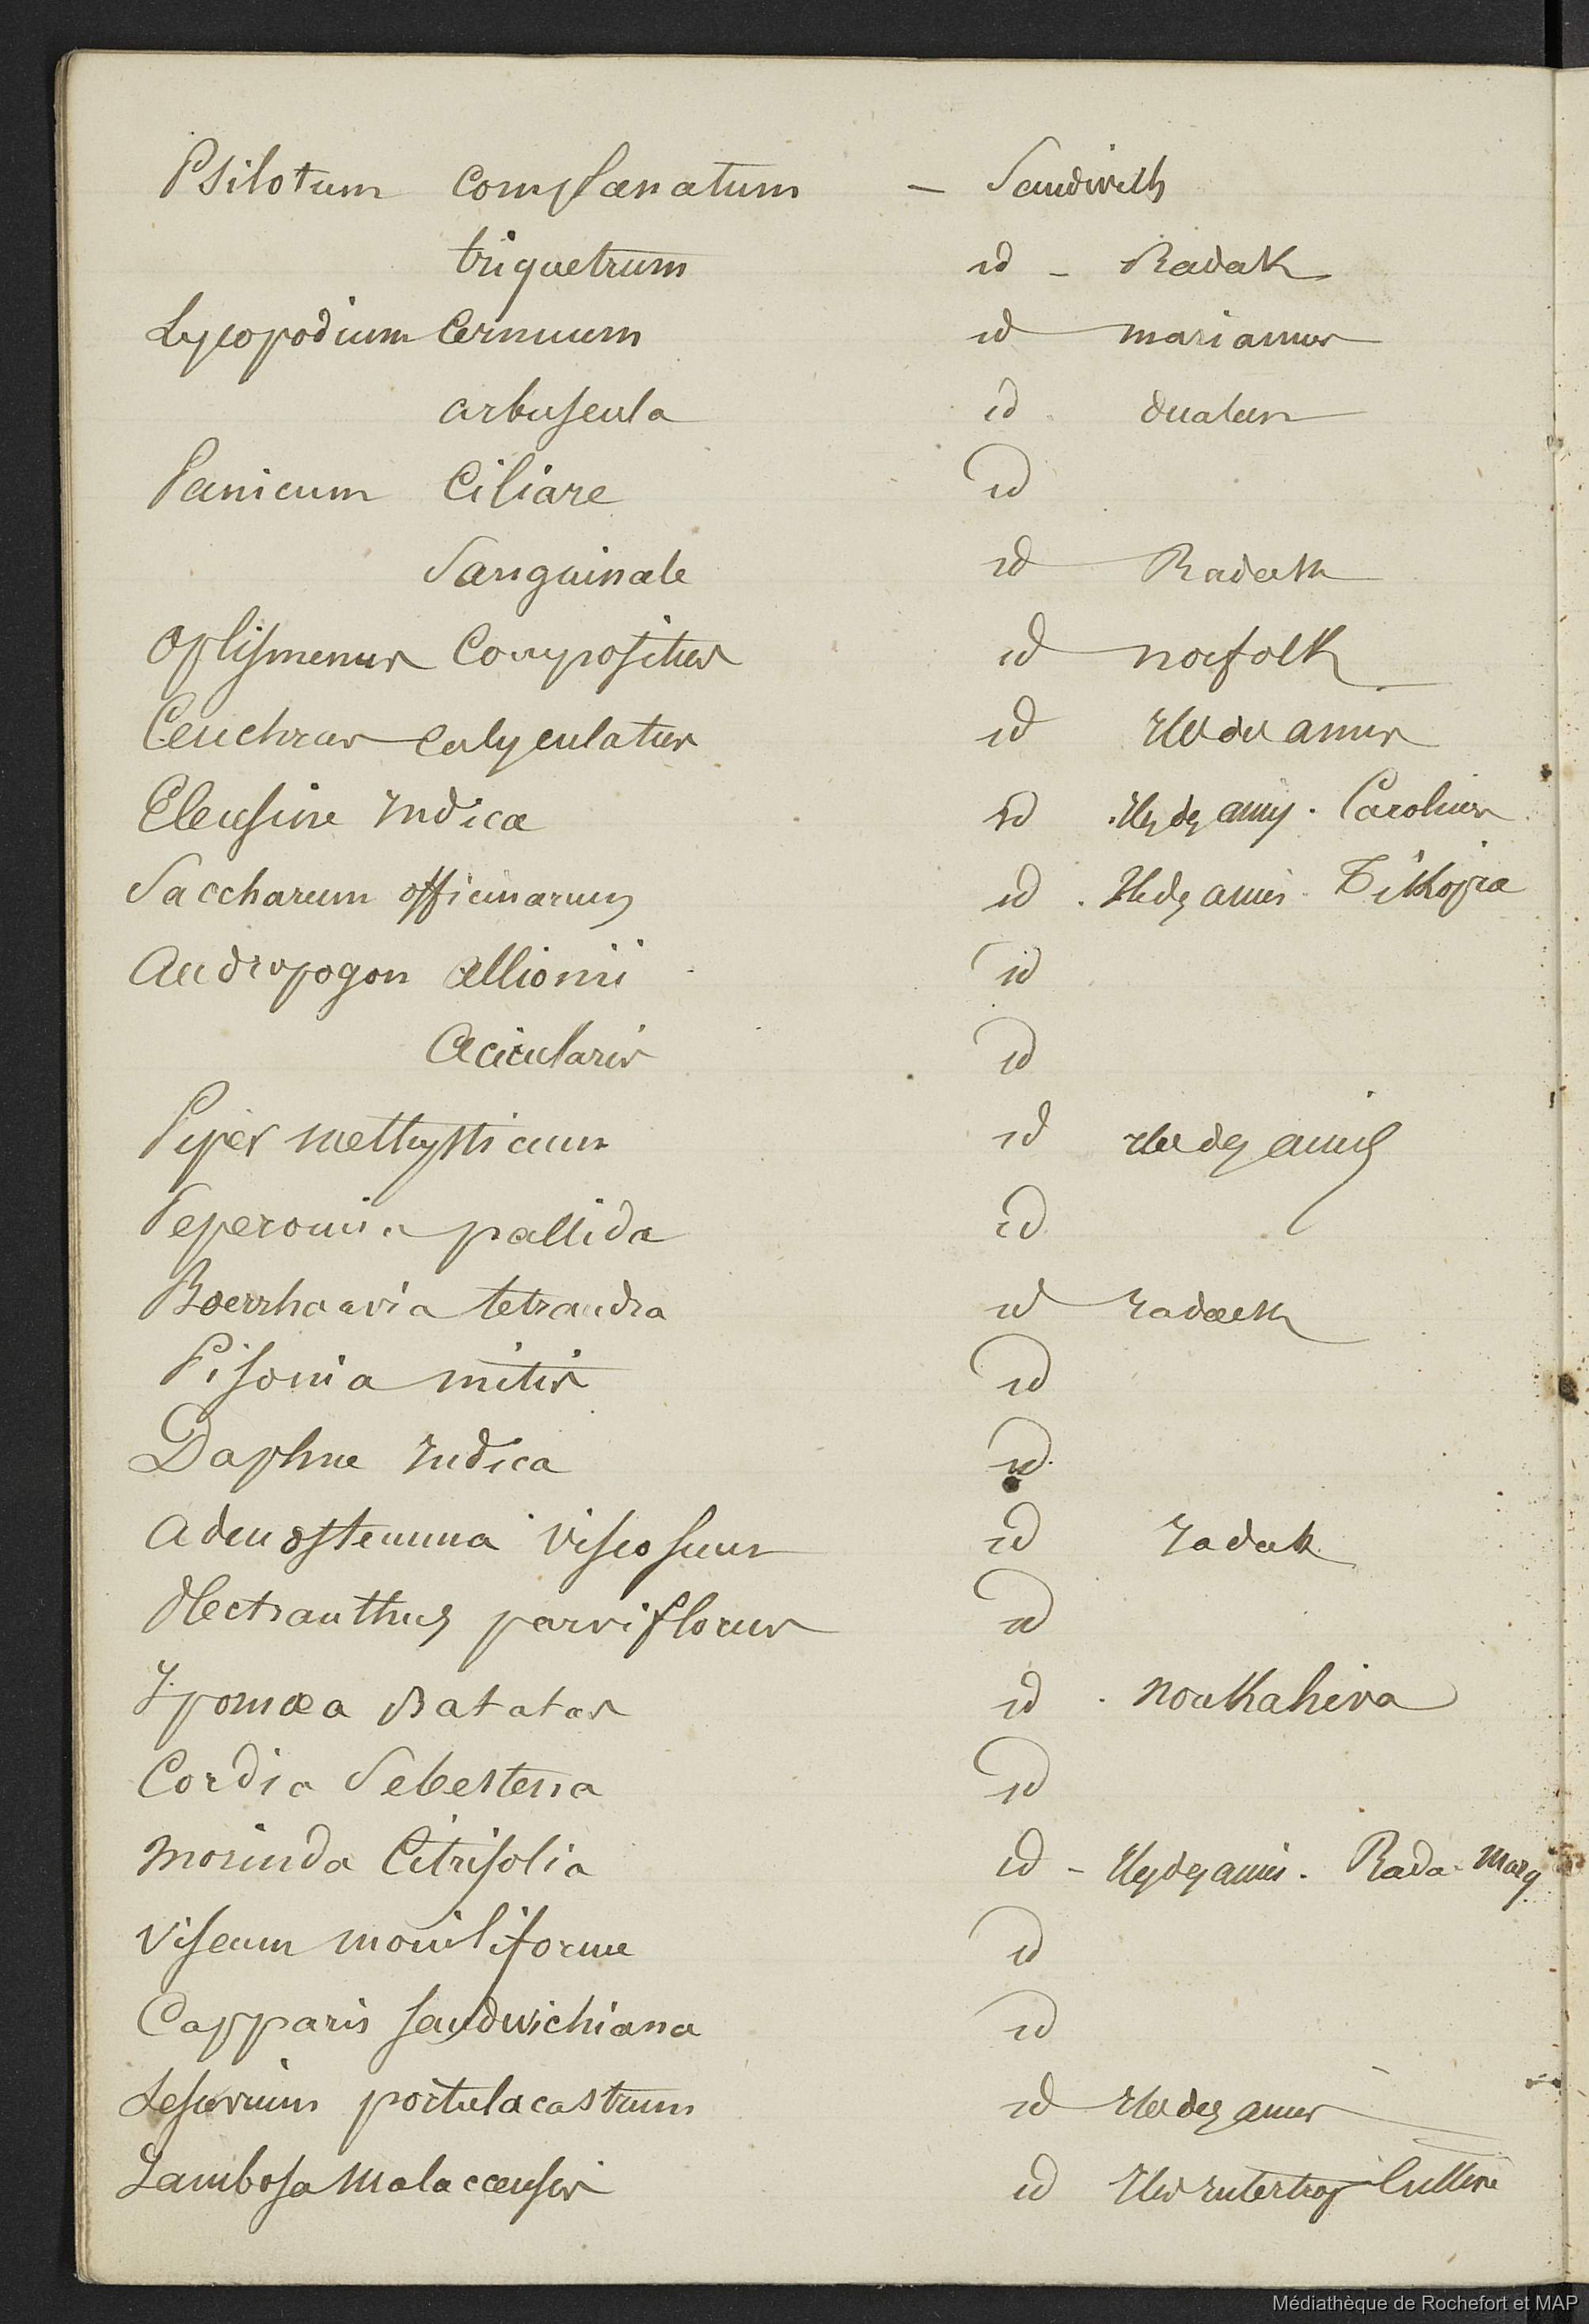 Psilotum complanatum – Sandwich
triquetrum id – Radak
Lycopodium Cernuum id mariannes
arbuscula id oualan
Panicum Ciliare id
Sanguinale id Radack
Oplismenus Compositus id norfolk
Cenchrus calyculatus id Iles des amis
Eleusine Indica id Iles des amis. Carolines
Saccharum officinarum id. Iles des amis. Tikopia
Andropogon allionii id
Acicularis id
Piper methysticum id Iles des amis
Peperomia pallida id
Boerrhaavia tetrandra id radack
Pisonia mitis id
Daphne Indica id
Adenostemma viscosum id radak
Plectranthus parviflorus id
Ipomœa Batatas id. noukahiva
Cordia Sebestena id
Morinda Citrifolia id – Iles des amis. Rada. Marq
Viscum moniliforme id
Capparis sandwichiana id
Sesuvium portulacastrum id Iles des amis
Jambosa malaccensis id Iles intertrop Cultivé
Médiathèque de Rochefort et MAP